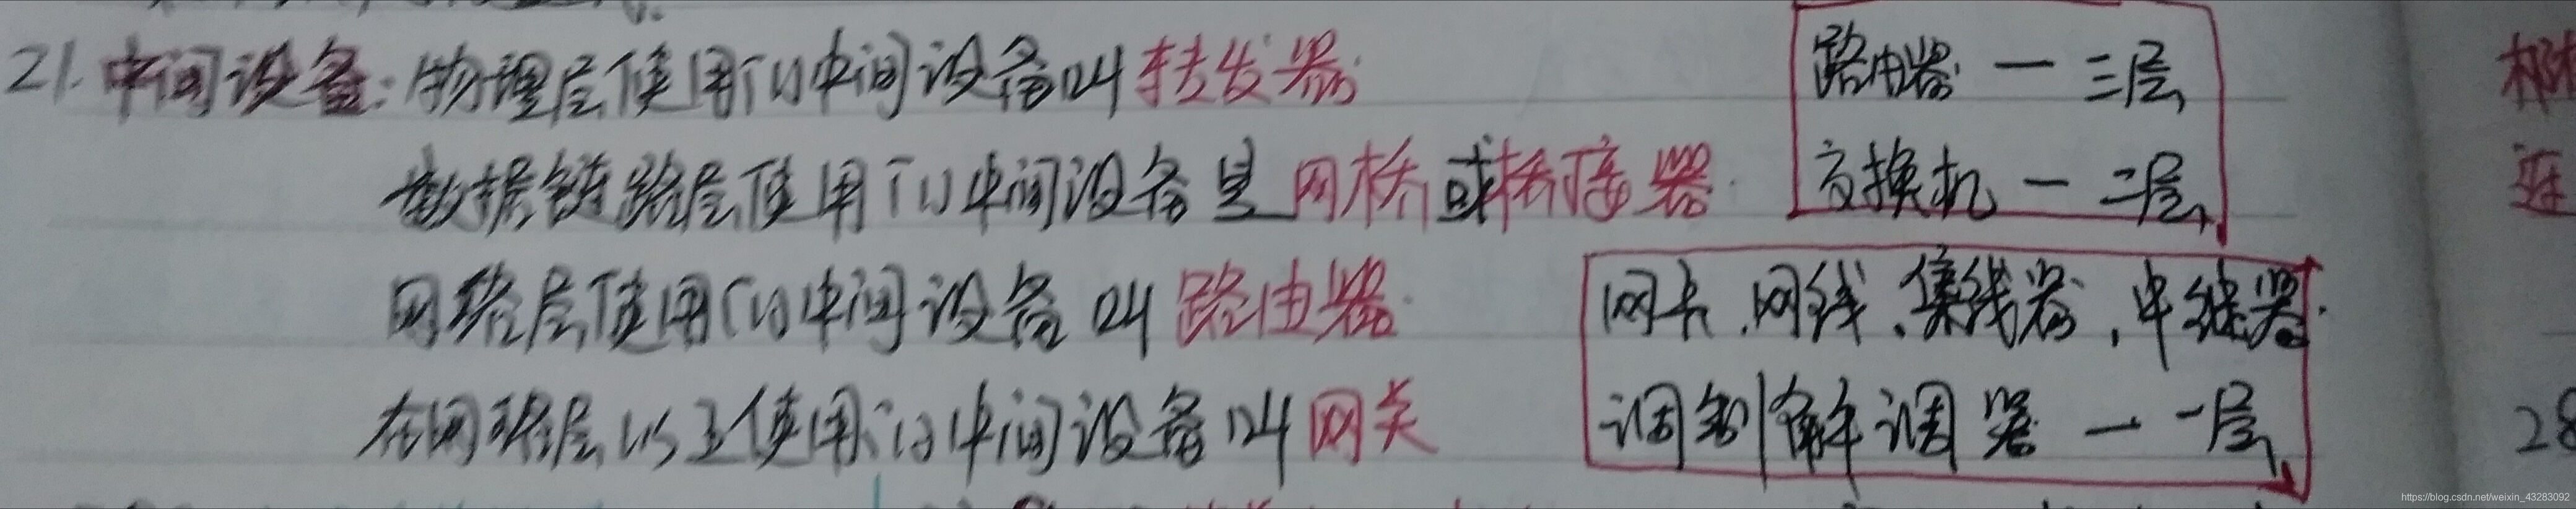 21. 中间设备: 物理层使用的中间设备叫转发器.
数据链路层使用的中间设备是网桥或桥接器.
网络层使用的中间设备叫路由器.
在网络层以上使用的中间设备叫网关
路由器 — 三层
交换机 — 二层
网卡、网线、集线器、中继器.
调制解调器 — 一层
连
28
https://blog.csdn.net/weixin_43283092